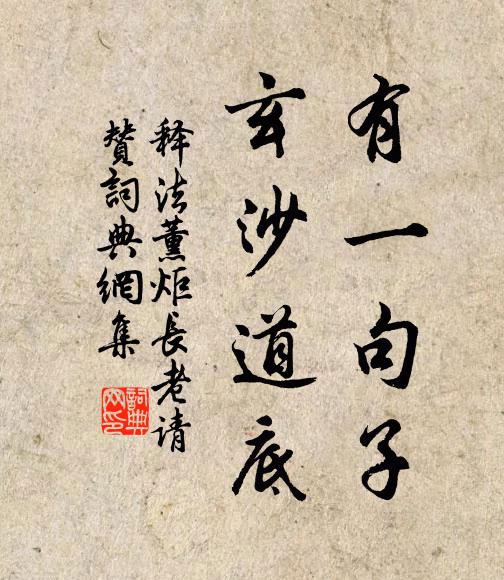 有一句子
玄沙道底
释法薰炬長老请
贊詞典網集
詞典
网印